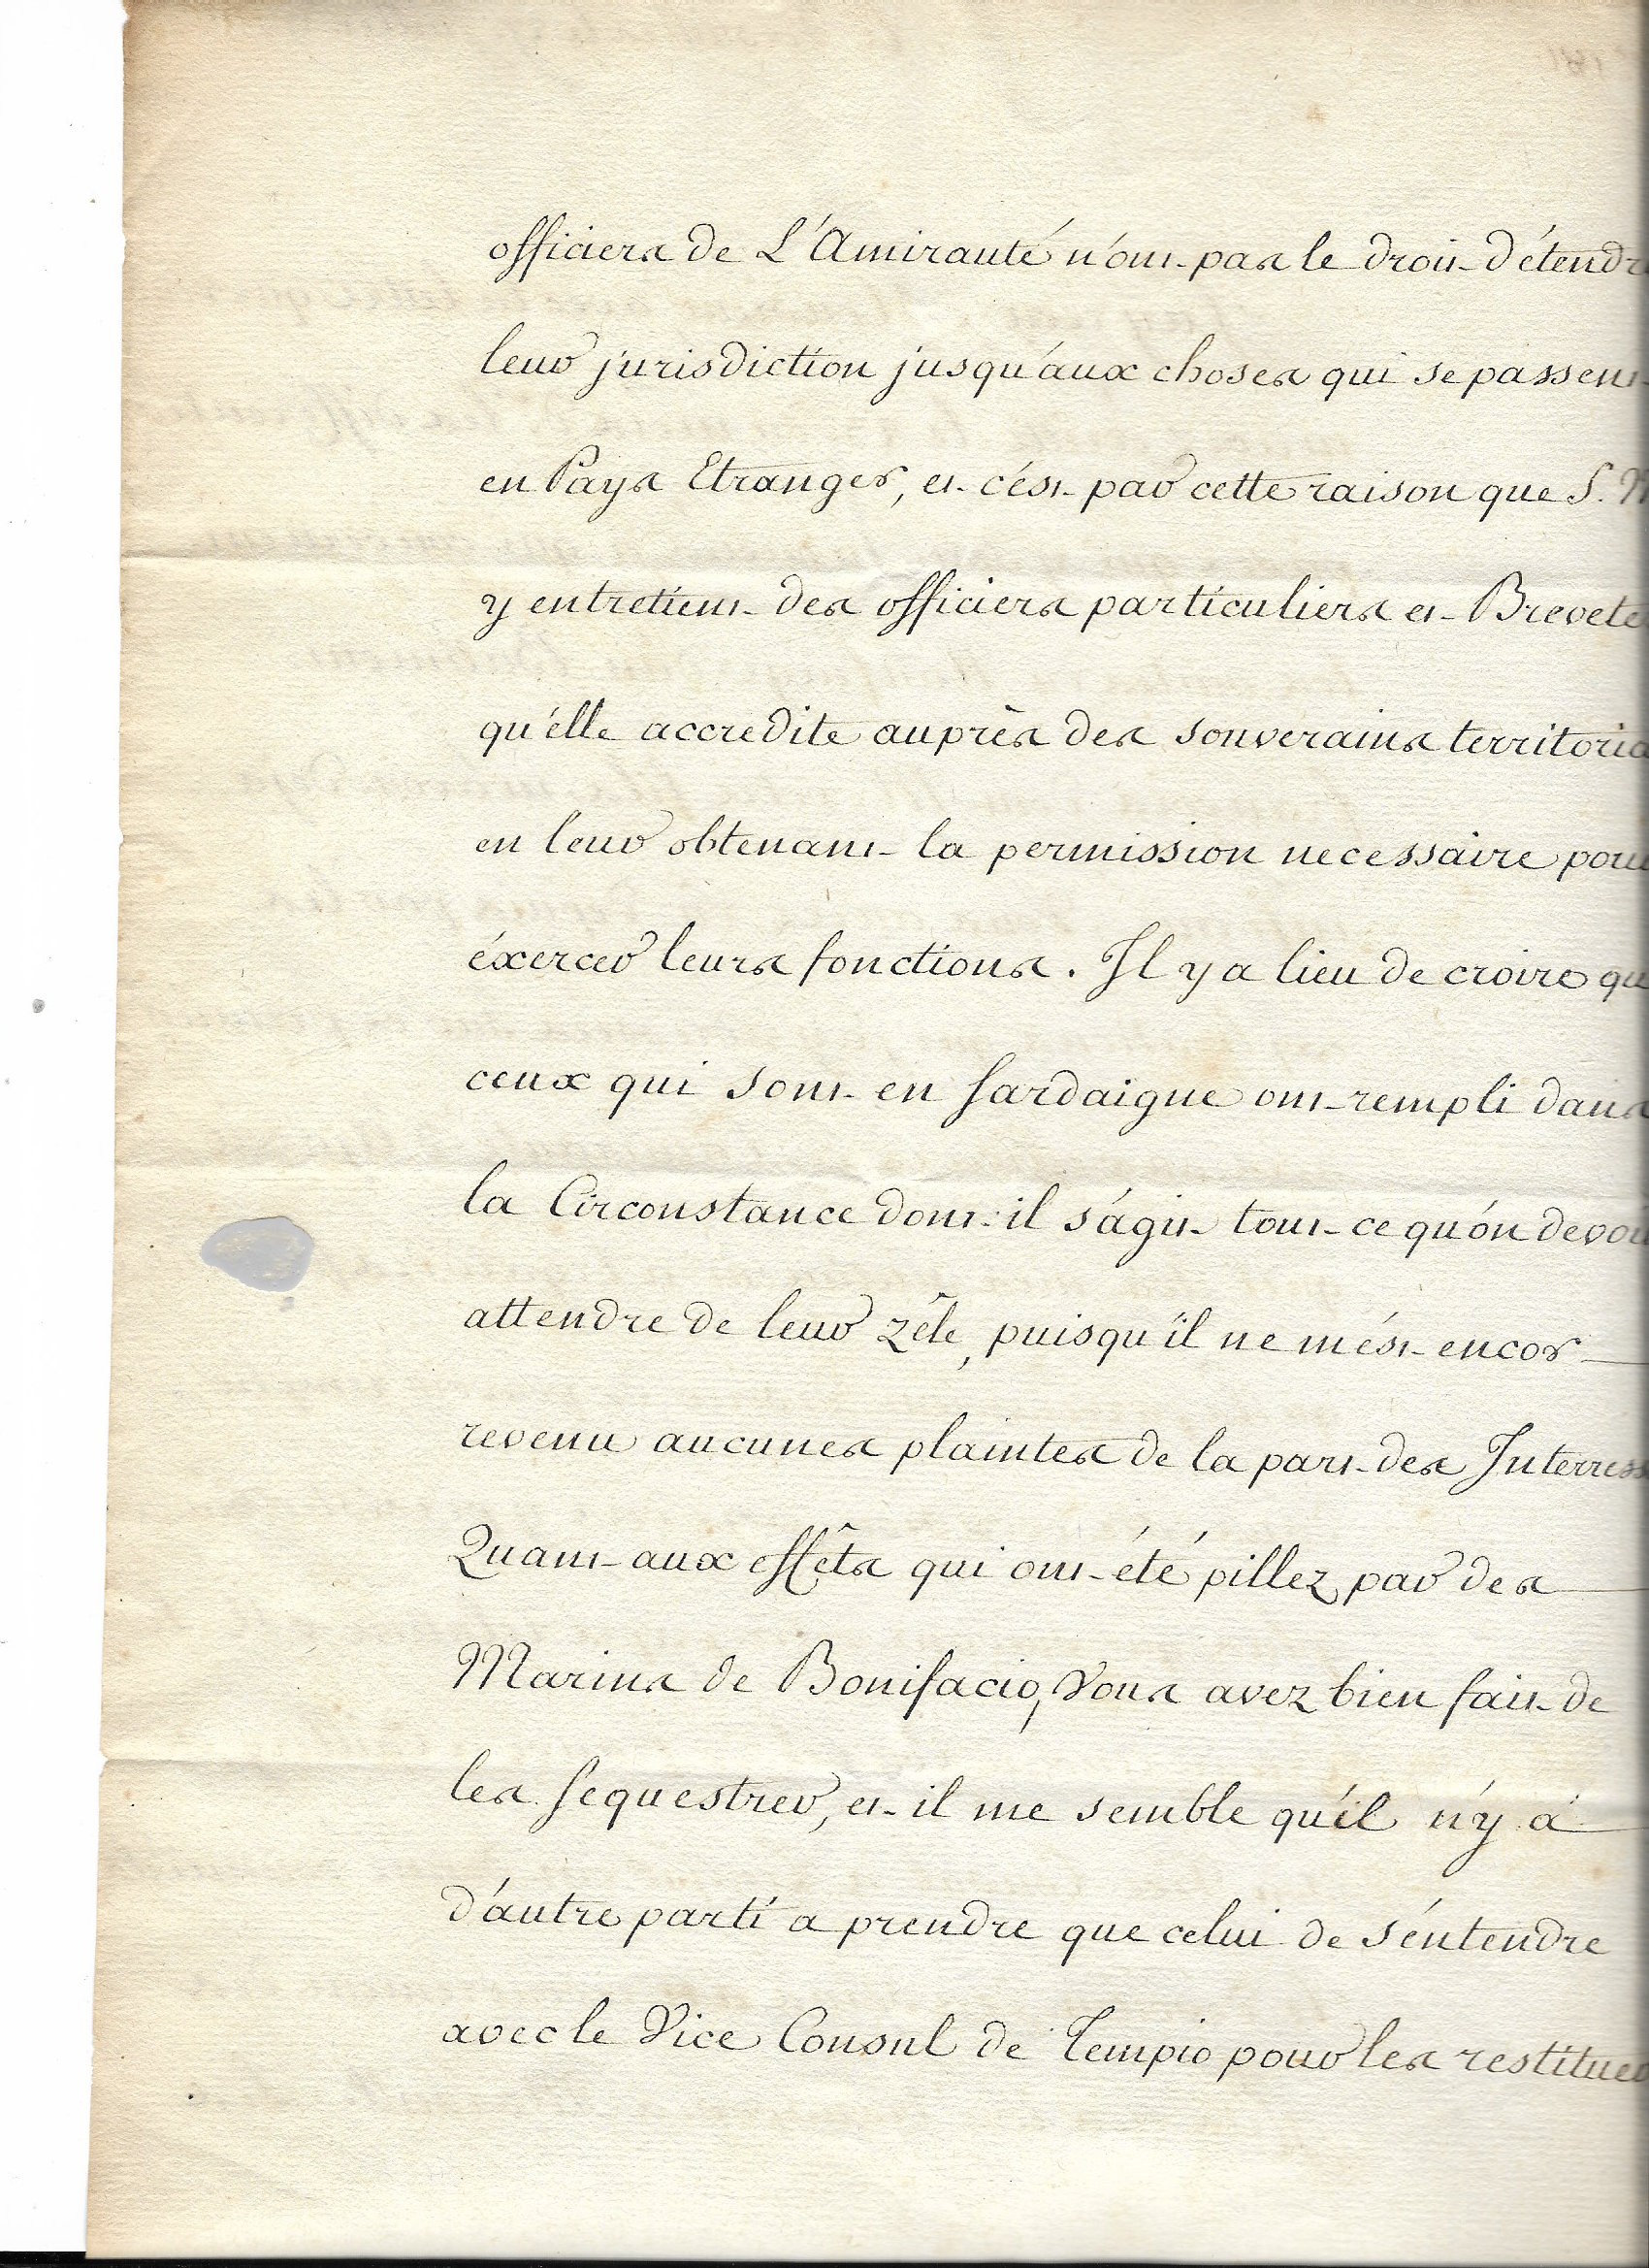 officiers de L'Amirauté n'ont pas le droit d'étendr
leur jurisdiction jusqu'aux choses qui se passent
en Pays Etranger, et c'ést par cette raison que S. M
y entretient des officiers particuliers et Breveté
qu'élle accredite auprès des souverains territoria
en leur obtenant la permission necessaire pour
éxercer leurs fonctions. Il y a lieu de croire que
ceux qui sont en Sardaigne ont rempli dans
la Circonstance dont il s'ágit tout ce qu'ón devoi
attendre de leur zêle, puisqu'il ne m'ést encor
revenu aucunes plaintes de la part des Interress
Quant aux effêts qui ont été pillez par des
Marins de Bonifacio, Vous avez bien fait de
les Sequestrer, et il me semble qu'il n'y á
d'áutre parti a prendre que celui de s'éntendre
avec le Vice Consul de Tempio pour les restituer